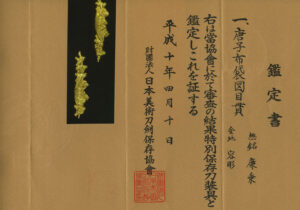 鑑定書
一、唐子布袋図目貫
無銘 廉乗
金地 容彫
右は當協會に於て審査の結果特別保存刀装具と
鑑定しこれを証する
平成十年四月十日
財団法人日本美術刀剣保存協會